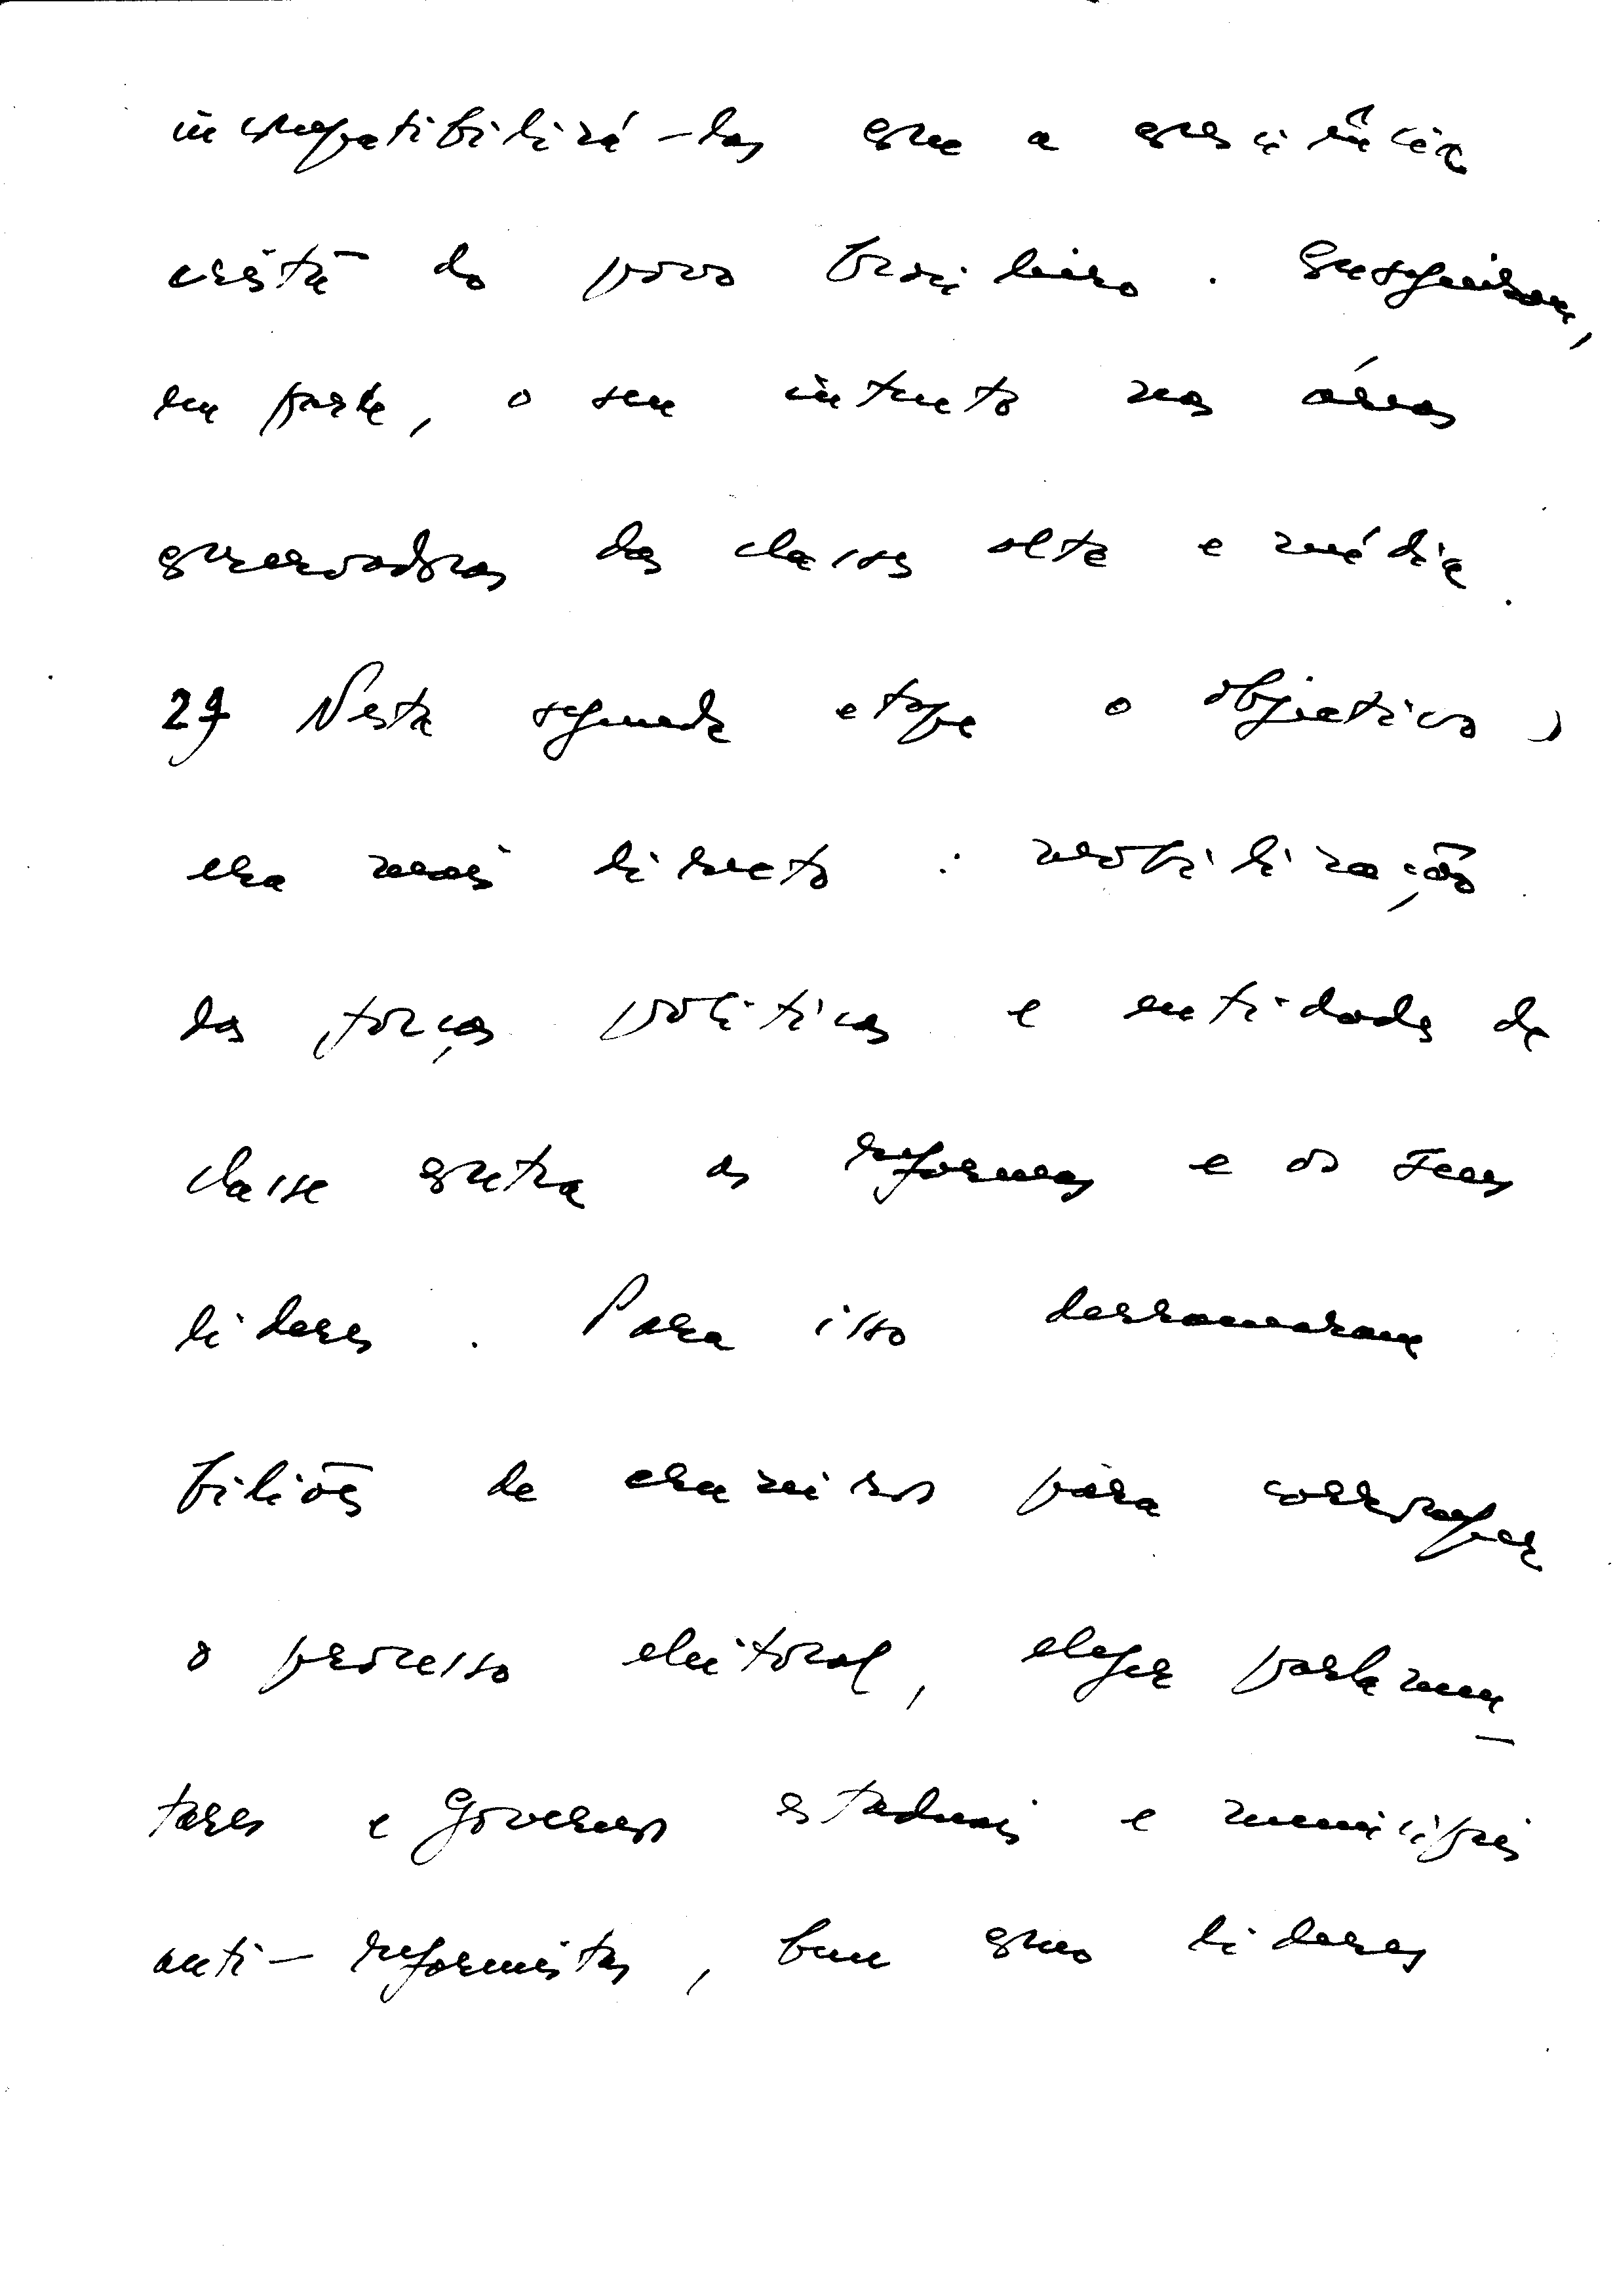 incompatibilizá-las com a consciência
cristã do povo brasileiro. Conseguiram,
em parte, o seu intento nas áreas
conservadoras das classes alta e média.
2ª Nesta segunda etapa o objectivo
era mais directo: mobilização
das forças politicas e entidades de
classe contra as reformas e os seus
lideres. Para isso derramaram
biliões de cruzeiros para corromper
o processo eleitoral, eleger parlamen-
tares e Governos estaduais e municipais
anti-reformistas, bem como lideres